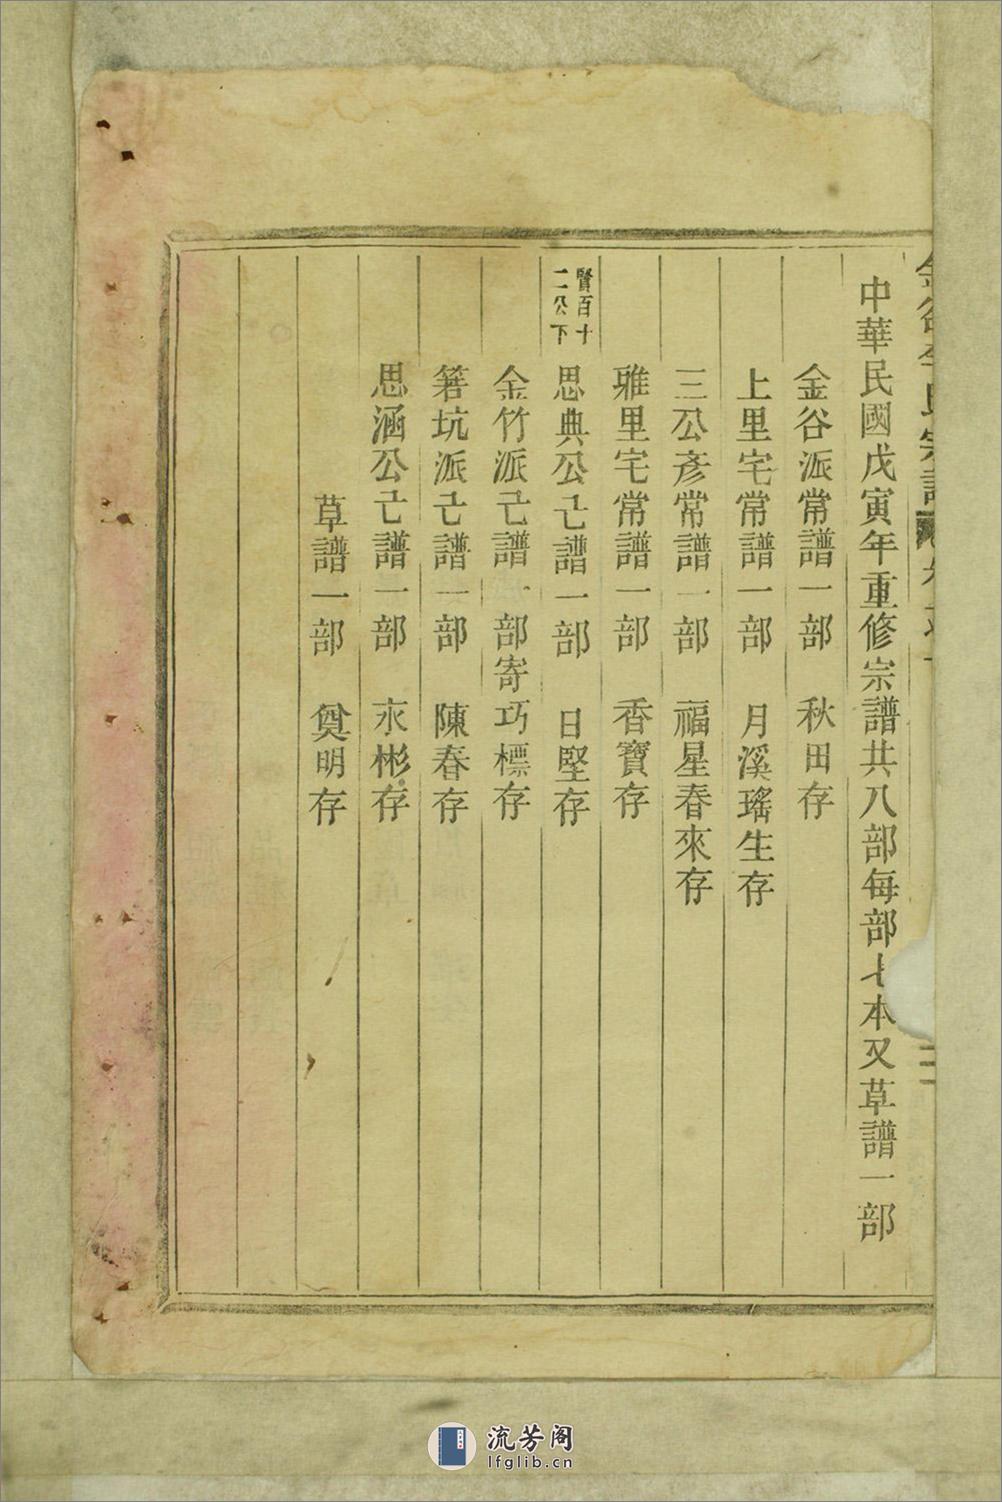 金谷李氏宗譜
中華民國戊寅年重修宗譜共八部每部七本又草譜一部
金谷派常譜一部 秋田存
上里宅常譜一部 月溪瑤生存
三公彥常譜一部 福星春來存
雅里宅常譜一部 香寶存
賢百十
二公下
思典公㠯譜一部 日堅存
金竹派㠯譜一部寄巧標存
箬坑派㠯譜一部 陳春存
思涵公㠯譜一部 永彬存
草譜一部 奠明存
流芳阁
lfglib.cn